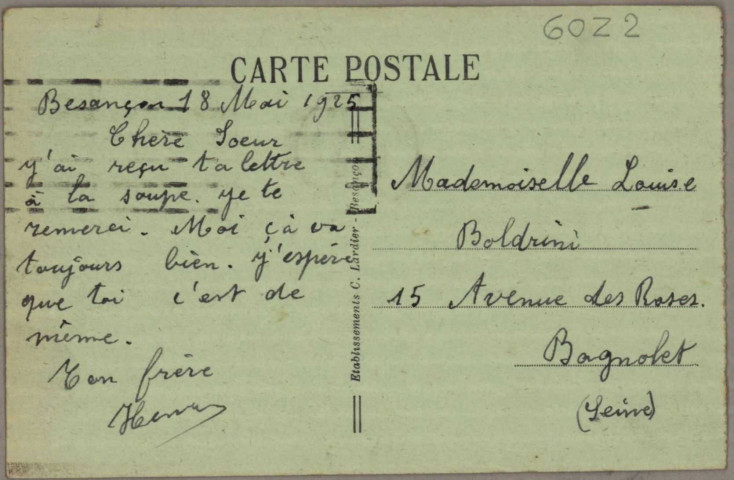 6022
CARTE POSTALE
Besançon 18 Mai 1925
Chère Soeur
y'ai reçu ta lettre
à la soupe. ye te
remerci. Moi çà va
toujours bien. y'espère
que toi c'est de
même.
Ton frère
Etablissements C. Lardier - Besançon
Mademoiselle Louise
Boldrini
15 Avenue des Roses.
Bagnolet
(Seine)